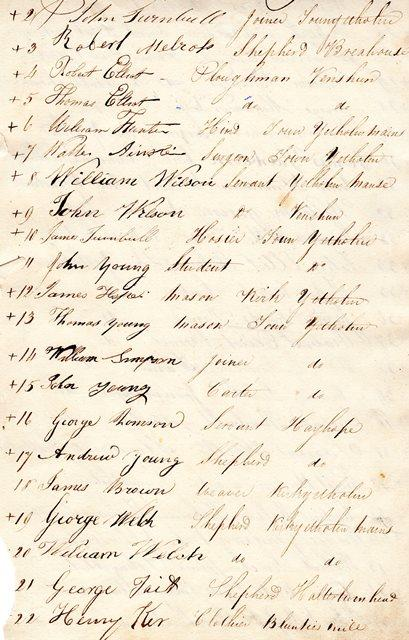 +2 John Turnbull Joiner Town Yetholm
+3 Robert Melros Shepherd
+4 Robert Elliot Ploughman Venshun
+5 Thomas Elliot do do
+6 William Hunter Hind Town Yetholm mains
+7 Walter Ainslie Surgon Town Yetholm
+8 William Wilson Servant Yetholm manse
+9 John Wilson Do Venshun
+10 James Turnbull Hosier Town Yetholm
11 John Young Student Do
+12 James mason Kirk Yetholm
+13 Thomas young mason Town Yetholm
+14 William Simpson Joiner do
+15 John Young Carter do
+16 George Thomson Servant Hayhope
+17 Andrew young Shepherd do
18 James Brown weaver Kirkyetholm
+19 George Welch Shepherd Kirkyetholm mains
20 William Welsh do do
21 George Tait Shepherd Halterburnhead
22 Henry Ker Clothier Blunties mill